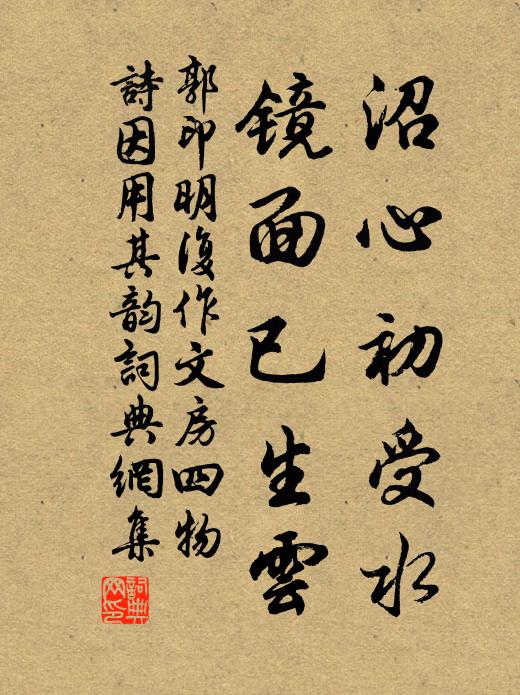 沼心初受水
鏡面已生雲
郭印明復作文房四物
詩因用其韵詞典網集
詞典網印